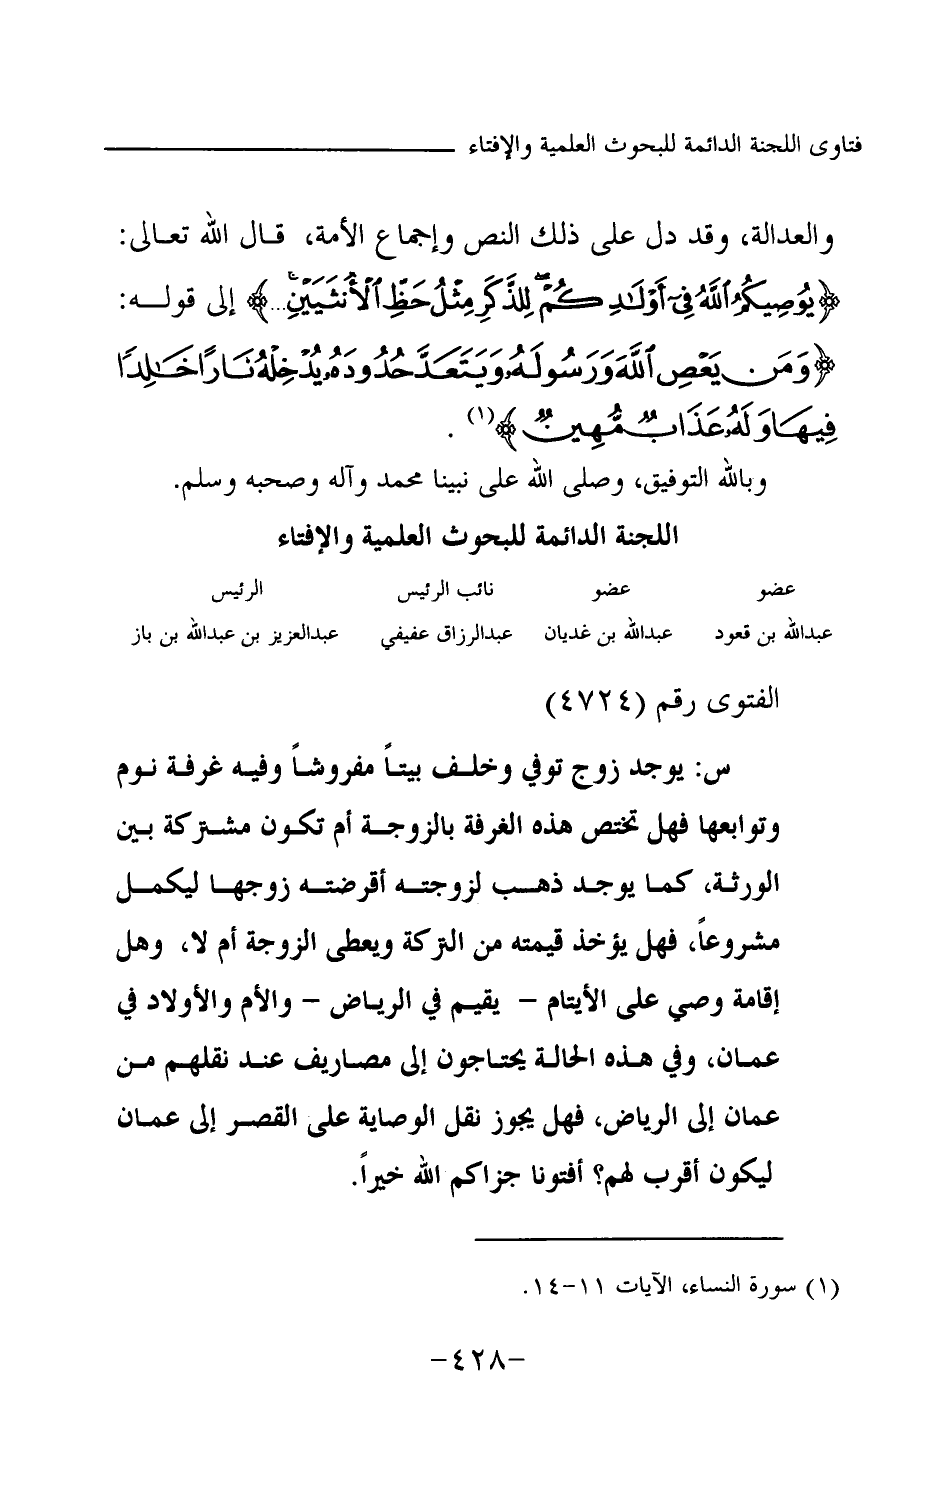 فتاوى اللجنة الدائمة للبحوث العلمية والإفتاء
والعدالة، وقد دل على ذلك النص وإجماع الأمة، قال الله تعالى:
﴿يُوصِيكُمُ ٱللَّهُ فِىٓ أَوْلَـٰدِكُمْ ۖ لِلذَّكَرِ مِثْلُ حَظِّ ٱلْأُنثَيَيْنِ ۚ...﴾ إلى قوله:
﴿وَمَن يَعْصِ ٱللَّهَ وَرَسُولَهُۥ وَيَتَعَدَّ حُدُودَهُۥ يُدْخِلْهُ نَارًا خَـٰلِدًا
فِيهَا وَلَهُۥ عَذَابٌ مُّهِينٌ﴾(١) .
وبالله التوفيق، وصلى الله على نبينا محمد وآله وصحبه وسلم.
اللجنة الدائمة للبحوث العلمية والإفتاء
عضو عضو نائب الرئيس الرئيس
عبدالله بن قعود عبدالله بن غديان عبدالرزاق عفيفي عبدالعزيز بن عبدالله بن باز
الفتوى رقم (٤٧٢٤)
س: يوجد زوج توفي وخلف بيتاً مفروشاً وفيه غرفة نوم
وتوابعها فهل تختص هذه الغرفة بالزوجة أم تكون مشتركة بين
الورثة، كما يوجد ذهب لزوجته أقرضته زوجها ليكمل
مشروعاً، فهل يؤخذ قيمته من التركة ويعطى الزوجة أم لا، وهل
إقامة وصي على الأيتام - يقيم في الرياض - والأم والأولاد في
عمان، وفي هذه الحالة يحتاجون إلى مصاريف عند نقلهم من
عمان إلى الرياض، فهل يجوز نقل الوصاية على القصر إلى عمان
ليكون أقرب لهم؟ أفتونا جزاكم الله خيراً.
(١) سورة النساء، الآيات ١١-١٤.
-٤٢٨-